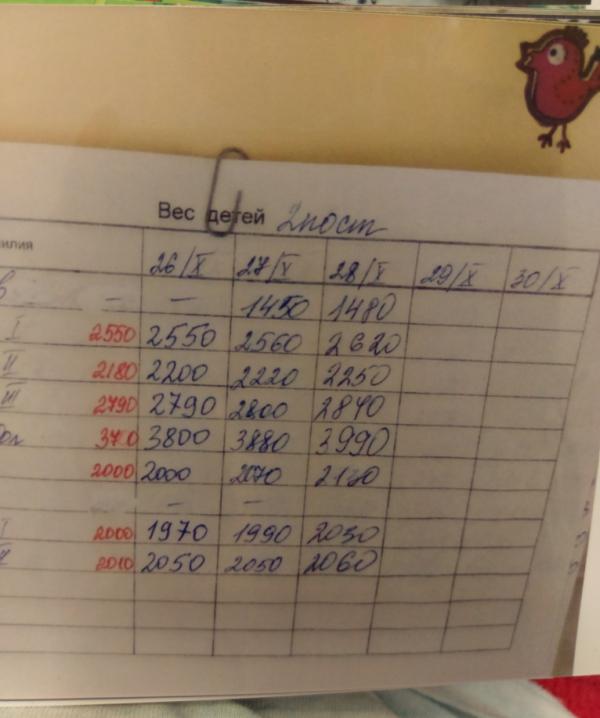 Вес детей 2пост
26/X 27/X 28/X 29/X 30/X
в — — 1450 1480
I 2550 2550 2560 2620
II 2180 2200 2220 2250
III 2790 2790 2800 2840
3800 3880 3990
2000 2000 2070 2130
— —
I 2000 1970 1990 2030
II 2010 2050 2050 2060